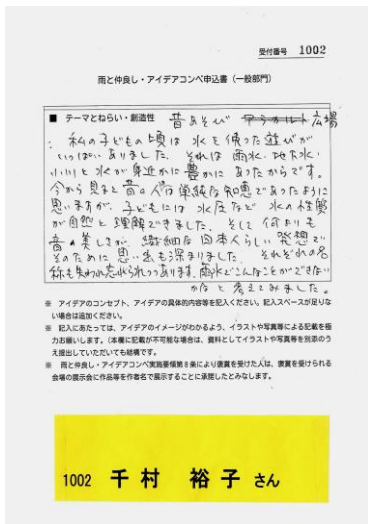 受付番号 1002
雨と仲良し・アイデアコンペ申込書（一般部門）
■ テーマとねらい・創造性 昔あそび アラカルト 広場
：私の子どもの頃は水を使った遊びが
いっぱいありました。それは雨水・地下水・
小川と水が身近かに豊かにあったからです。
今から見ると昔の人の単純な知恵であったように
思いますが、子どもには水圧など水の性質
が自然と理解できました。そして何よりも
音の美しさが、繊細な日本人らしい発想で
そのために思い出も深まりました。それぞれの名
称も失われ忘れられつつあります。雨水でこんなことができない
かなと考えてみました。
※ アイデアのコンセプト、アイデアの具体的内容等を記入ください。記入スペースが足りな
い場合は追加ください。
※ 記入にあたっては、アイデアのイメージがわかるよう、イラストや写真等による記載を極
力お願いします。（本欄に記載が不可能な場合は、資料としてイラストや写真等を別添のう
え提出していただいても結構です。
※ 雨と仲良し・アイデアコンペ実施要領第8条により褒賞を受けた人は、褒賞を受けられる
会場の展示会に作品等を作者名で展示することに承諾したとみなします。
1002 千村 裕子 さん